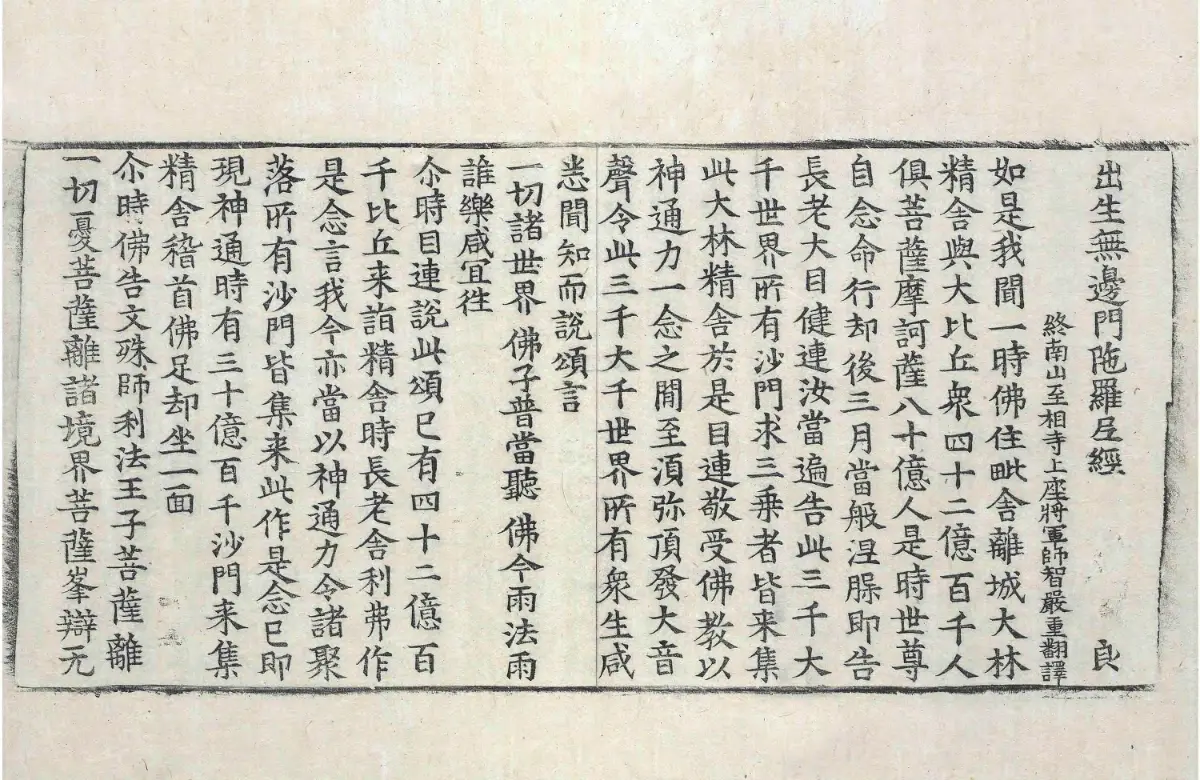 出生無邊門陁羅尼經 良
終南山至相寺上座將軍師智嚴重翻譯
如是我聞一時佛住毗舍離城大林
精舍與大比丘衆四十二億百千人
俱菩薩摩訶薩八十億人是時世尊
自念命行却後三月當般涅槃即告
長老大目健連汝當遍告此三千大
千世界所有沙門求三乗者皆来集
此大林精舍於是目連敬受佛教以
神通力一念之閒至湏弥頂發大音
聲令此三千大千世界所有衆生咸
悉聞知而説頌言
一切諸世界 佛子普當聽 佛今雨法雨
誰樂咸宜往
尒時目連說此頌已有四十二億百
千比丘来詣精舍時長老舍利弗作
是念言我今亦當以神通力令諸聚
落所有沙門皆集来此作是念已即
現神通時有三十億百千沙門来集
精舍稽首佛足却坐一面
尒時佛告文殊師利法王子菩薩離
一切憂菩薩離諸境界菩薩峯辯无